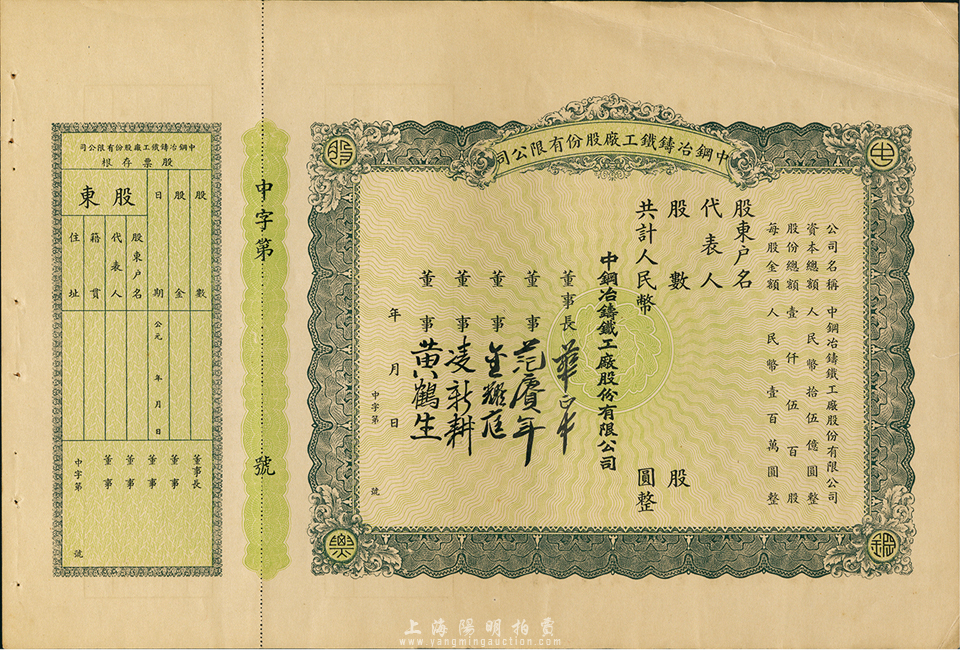 中鋼冶鑄鐵工廠股份有限公司
公司名稱 中鋼冶鑄鐵工廠股份有限公司
資本總額 人民幣拾伍億圓整
股份總額 壹仟伍百股
每股金額 人民幣壹百萬圓整
股東户名
代表人
股數 股
共計人民幣 圓整
中鋼冶鑄鐵工廠股份有限公司
董事長
董事 范賡年
董事 金耀庭
董事 凌新耕
董事 黃鶴生
年 月 日
中字第 號
股
票
中字第 號
中鋼冶鑄鐵工廠股份有限公司
股票存根
股數
股金
日期 公元 年 月 日
股東
股東户名
代表人
籍貫
住址
董事長
董事
董事
董事
董事
中字第 號
上海陽明拍賣
www.yangmingauction.com